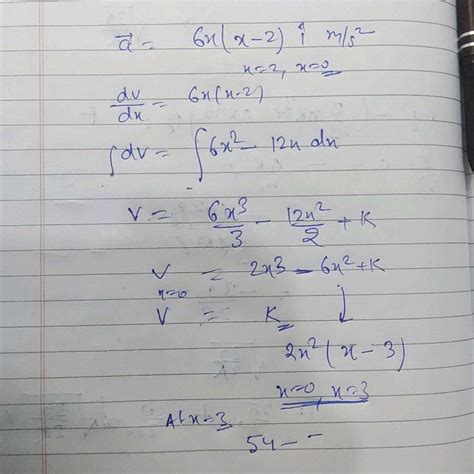 a⃗ = 6x(x-2) î m/s²
x=2, x=0
dv/dx = 6x(x-2)
∫dv = ∫6x² - 12x dx
V = 6x³/3 - 12x²/2 + K
V = 2x3 - 6x²+K
x=0
V = K
2x²(x-3)
x=0, x=3
At x=3
54 - -